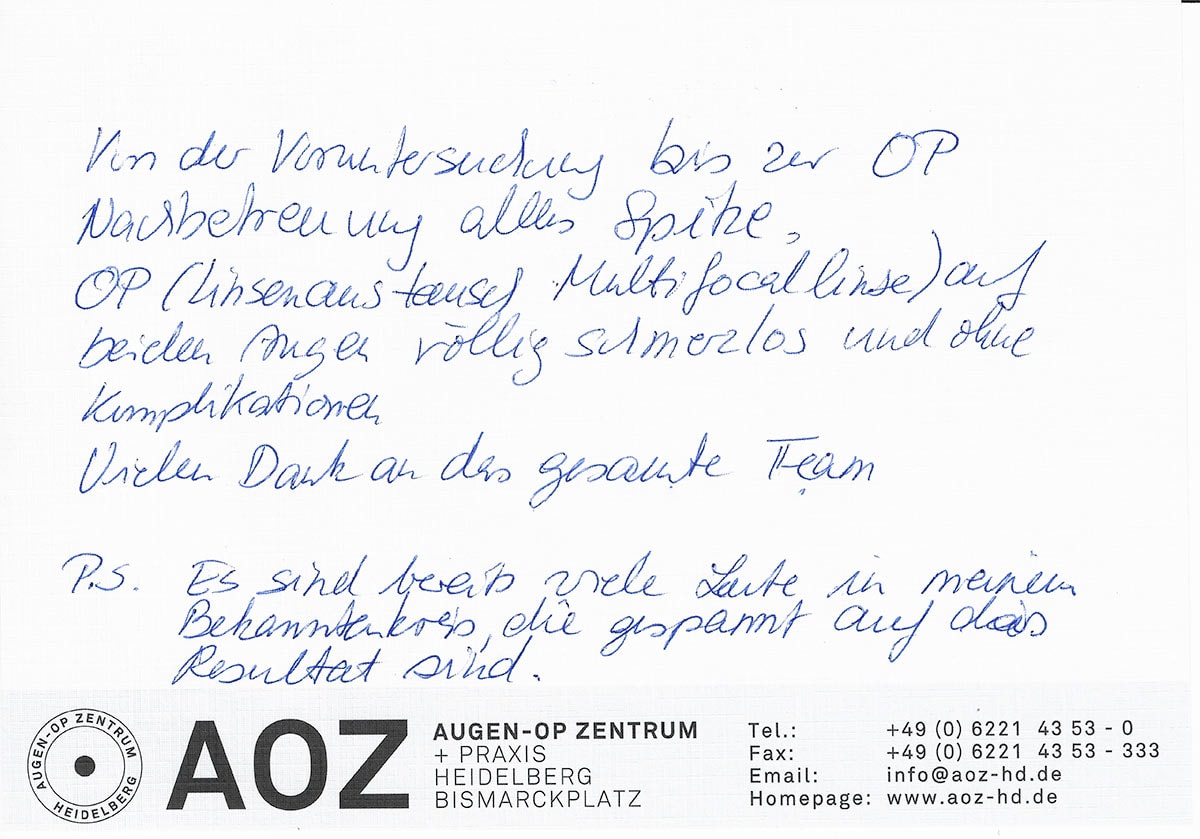 Von der Voruntersuchung bis zur OP
Nachbetreuung alles Spitze,
OP (Linsenaustausch Multifocallinse) auf
beiden Augen völlig schmerzlos und ohne
Komplikationen
Vielen Dank an das gesamte Team
P.S. Es sind bereits viele Leute in meinem
Bekanntenkreis, die gespannt auf das
Resultat sind.
AUGEN-OP ZENTRUM HEIDELBERG
AOZ
AUGEN-OP ZENTRUM
+ PRAXIS
HEIDELBERG
BISMARCKPLATZ
Tel.: +49 (0) 6221 43 53 - 0
Fax: +49 (0) 6221 43 53 - 333
Email: info@aoz-hd.de
Homepage: www.aoz-hd.de